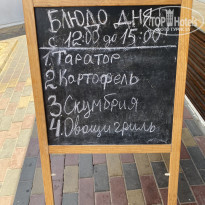 БЛЮДО ДНЯ
с 12:00 до 15:00
1. Таратор
2 Картофель
3 Скумбрия
4. Овощи гриль